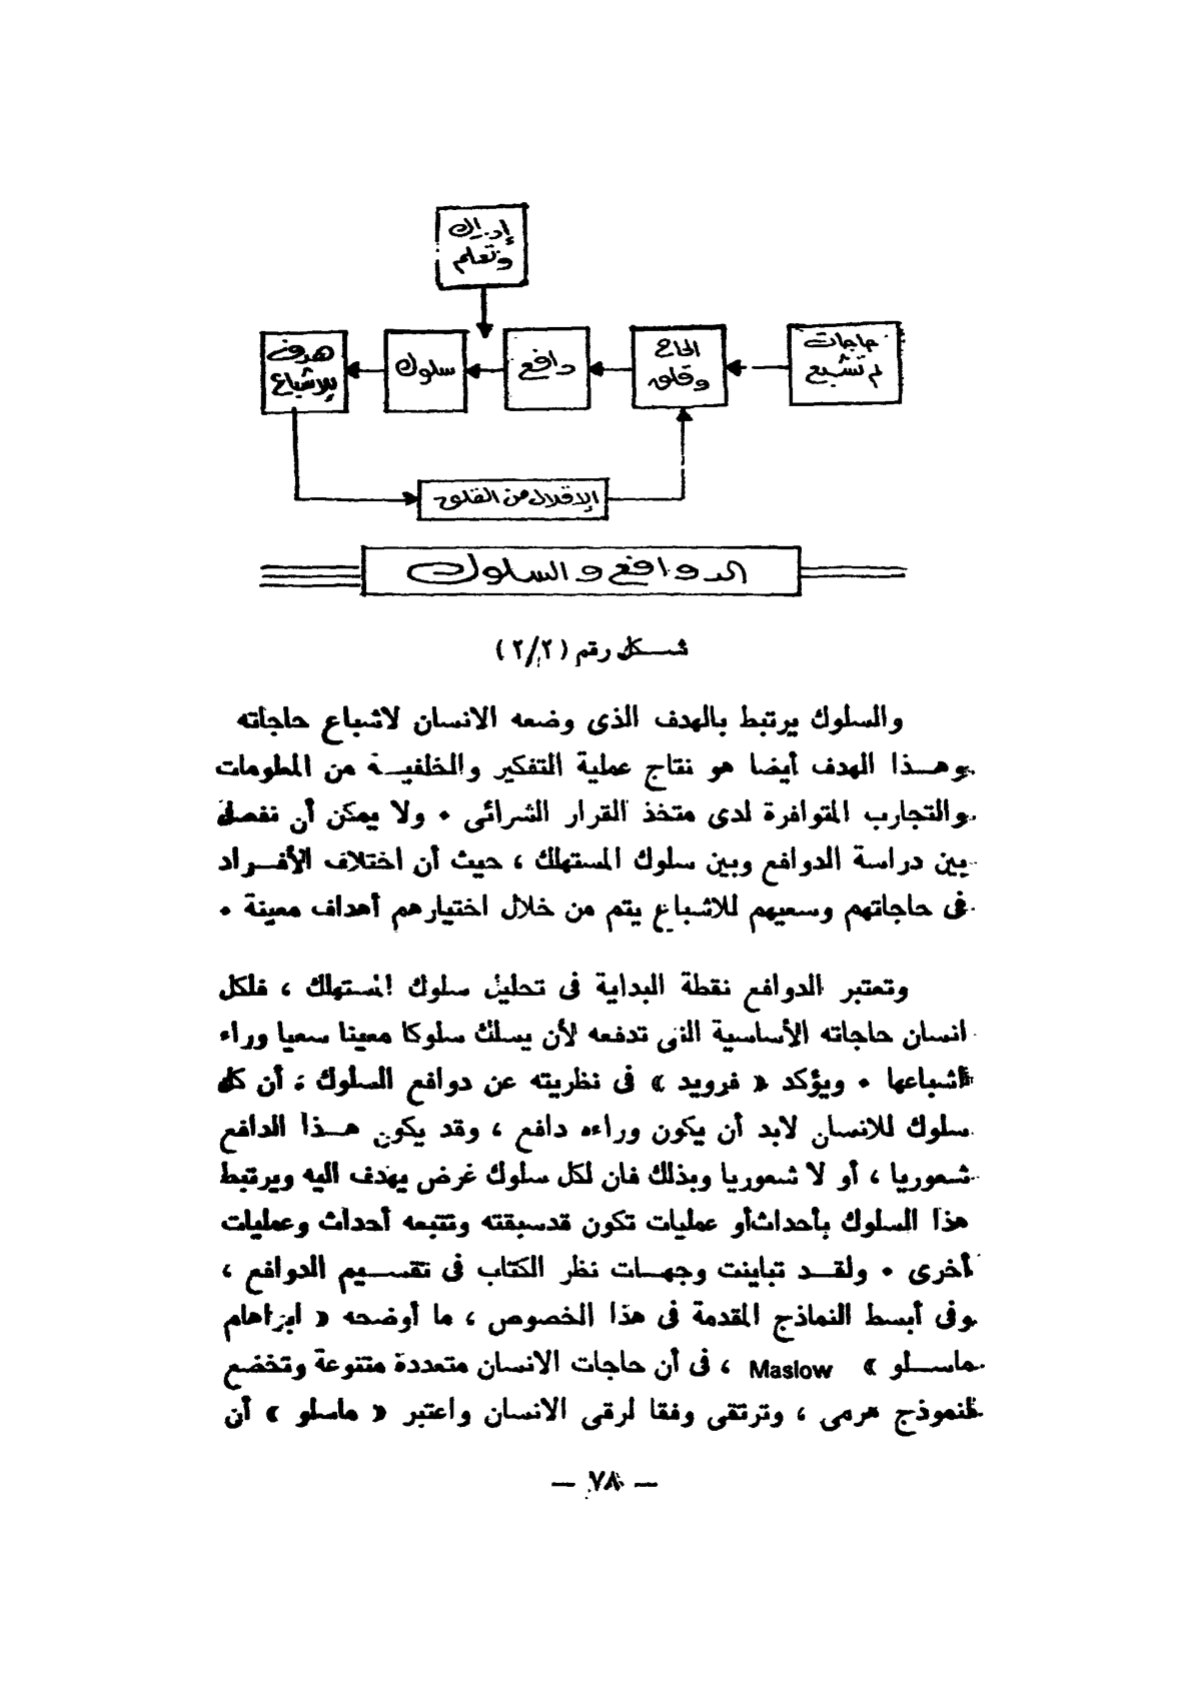 إدراك
وتعلم
حاجات
لم تشبع
الحاح
وقلق
دافع
سلوك
هدف
للاشباع
الإقلال من القلق
الدوافع والسلوك
شـــكل رقم (٢/٢)
والسلوك يرتبط بالهدف الذى وضعه الانسان لاشباع حاجاته
وهــذا الهدف أيضا هو نتاج عملية التفكير والخلفيــة من المعلومات
والتجارب المتوافرة لدى متخذ القرار الشرائى ٠ ولا يمكن أن نفصل
بين دراسة الدوافع وبين سلوك المستهلك ، حيث أن اختلاف الأفــراد
فى حاجاتهم وسعيهم للاشباع يتم من خلال اختيارهم أهداف معينة ٠
وتعتبر الدوافع نقطة البداية فى تحليل سلوك المستهلك ، فلكل
انسان حاجاته الأساسية التى تدفعه لأن يسلك سلوكا معينا سعيا وراء
اشباعها ٠ ويؤكد « فرويد » فى نظريته عن دوافع السلوك ، أن كل
سلوك للانسان لابد أن يكون وراءه دافع ، وقد يكون هــذا الدافع
شعوريا ، أو لا شعوريا وبذلك فان لكل سلوك غرض يهدف اليه ويرتبط
هذا السلوك بأحداث أو عمليات تكون قدسبقته وتتبعه أحداث وعمليات
أخرى ٠ ولقــد تباينت وجهــات نظر الكتاب فى تقســيم الدوافع ،
وفى أبسط النماذج المقدمة فى هذا الخصوص ، ما أوضحه « ابراهام
ماســلو » Maslow ، فى أن حاجات الانسان متعددة متنوعة وتخضع
لنموذج هرمى ، وترتقى وفقا لرقى الانسان واعتبر « ماسلو » أن
— ٧٨ —